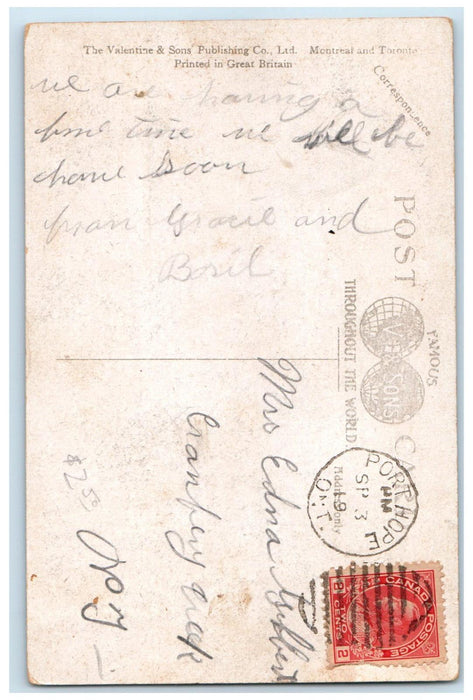 The Valentine & Sons Publishing Co., Ltd. Montreal and Toronto
Printed in Great Britain
Correspondence
we are having a
fine time we will be
home soon
from Gracie and
Basil
POST CA
FAMOUS
THROUGHOUT THE WORLD
Address Only
PORT HOPE
PM
SP 3
19
ONT.
CANADA POSTAGE
2 TWO CENTS 2
Mrs Edna
Creek
$2.50
Ont